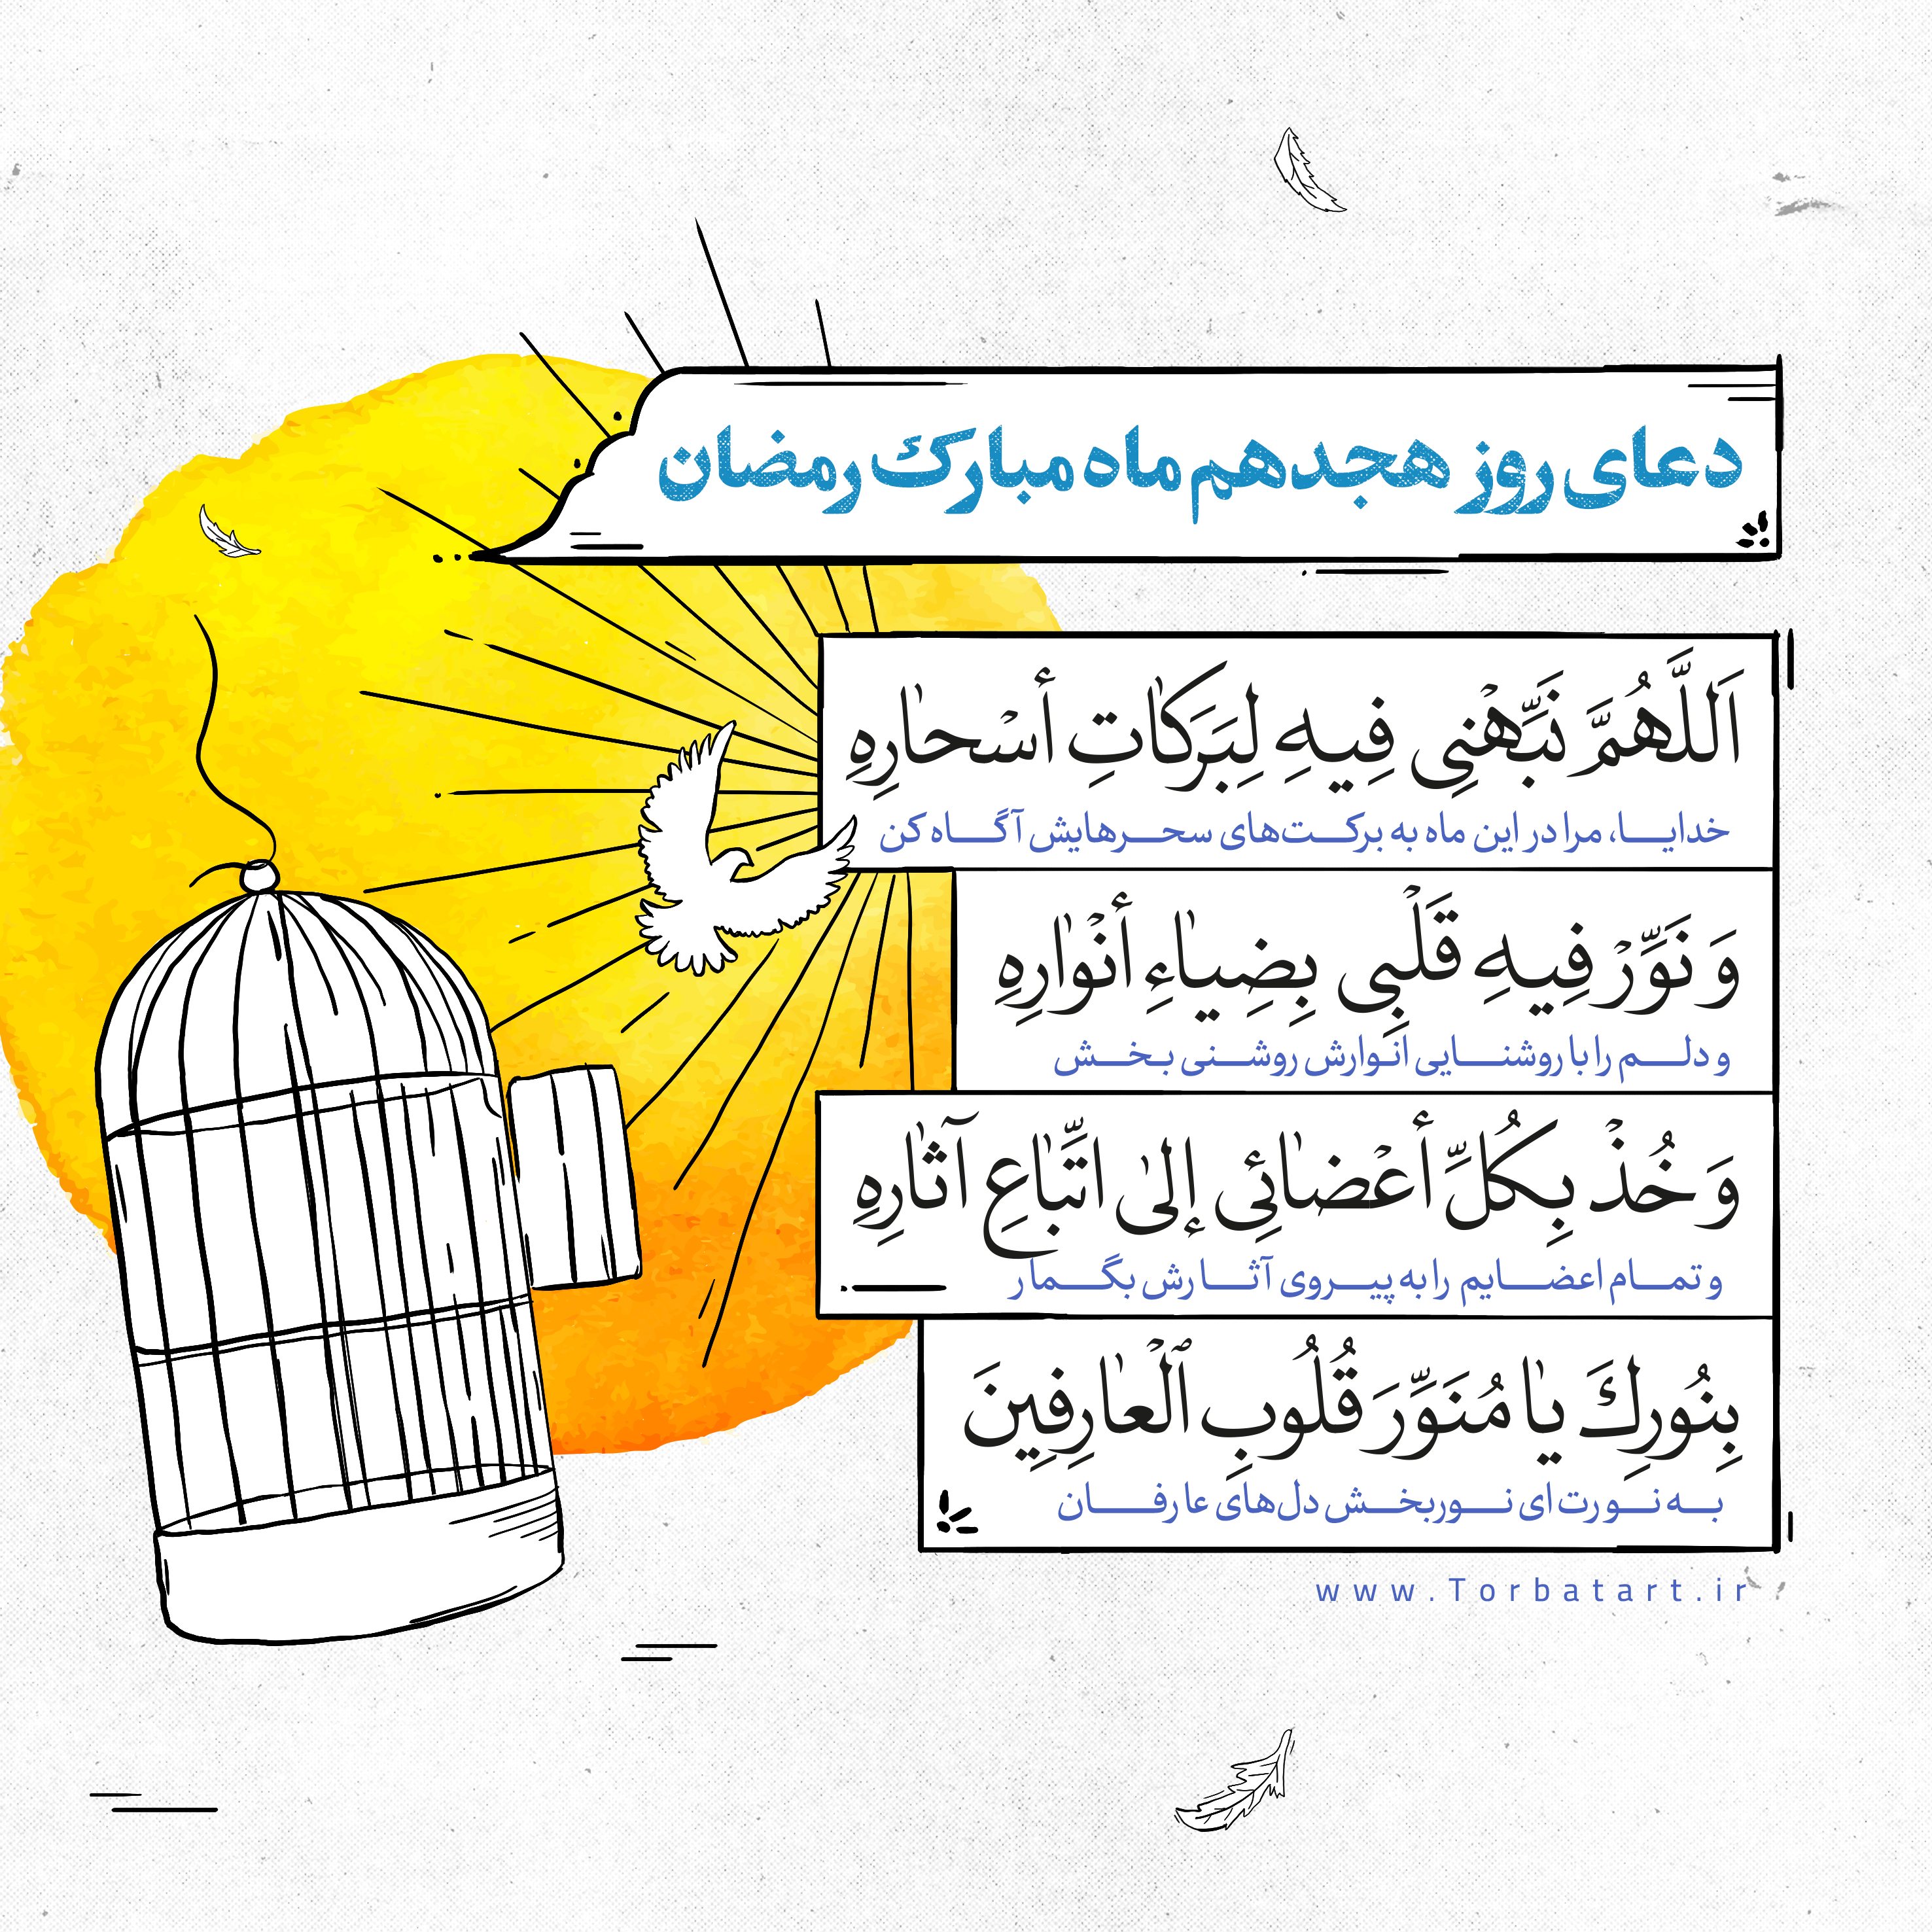 دعای روز هجدهم ماه مبارک رمضان
اَللَّهُمَّ نَبِّهْنِی فِیهِ لِبَرَکٰاتِ أسْحٰارِهِ
خدایا، مرا در این ماه به برکت‌های سحرهایش آگاه کن
وَ نَوِّرْ فِیهِ قَلْبِی بِضِیٰاءِ أنْوٰارِهِ
و دلم را با روشنایی انوارش روشنی بخش
وَ خُذْ بِکُلِّ أعْضٰائِی إلیٰ اتِّبٰاعِ آثٰارِهِ
و تمام اعضایم را به پیروی آثارش بگمار
بِنُورِكَ یٰا مُنَوِّرَ قُلُوبِ ٱلْعٰارِفِینَ
به نورت ای نوربخش دل‌های عارفان
www.Torbatart.ir